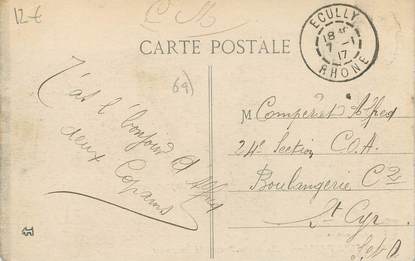 12€
C M
CARTE POSTALE
(69)
ECULLY
18
7 - 1
17
RHONE
C'est l'bonjour d'Alfred
deux Copains
M Comperat Alfred
24e Section C.O.A.
Boulangerie
St Cyr